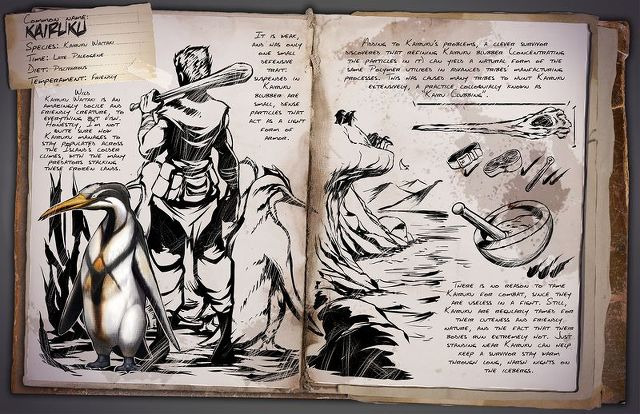 Common name:
KAIRUKU
Species: Kairuku Waitaki
Time: Late Paleogene
Diet: Piscivorous
Temperament: Friendly
Wild
Kairuku Waitaki is an
amazingly docile and
friendly creature, to
everything but fish.
Honestly, I'm not
quite sure how
Kairuku manages to
stay populated across
the Island's colder
climes, with the many
predators stalking
these frozen lands.
It is weak,
and has only
one small
defensive
trait:
suspended in
Kairuku
blubber are
small, dense
particles that
act as a light
form of
armor.
Adding to Kairuku's problems, a clever survivor
discovered that refining Kairuku blubber (concentrating
the particles in it) can yield a natural form of the
same Polymer utilized in advanced tribes' manufacturing
processes. This has caused many tribes to hunt Kairuku
extensively, a practice colloquially known as
"Kairu Clubbing".
There is no reason to tame
Kairuku for combat, since they
are useless in a fight. Still,
Kairuku are regularly tamed for
their cuteness and friendly
nature, and the fact that their
bodies run extremely hot. Just
standing near Kairuku can help
keep a survivor stay warm
through long, harsh nights on
the icebergs.